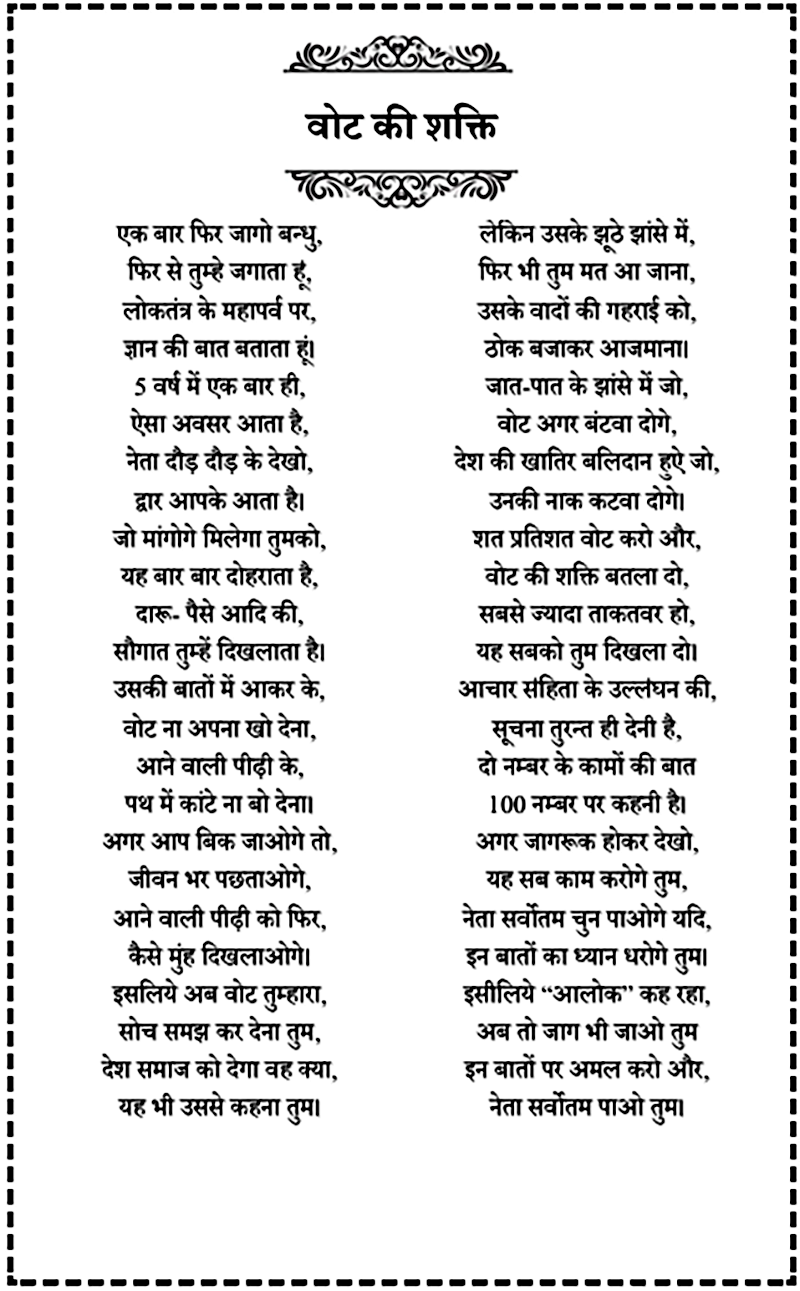 वोट की शक्ति
एक बार फिर जागो बन्धु,
फिर से तुम्हे जगाता हूं,
लोकतंत्र के महापर्व पर,
ज्ञान की बात बताता हूं।
5 वर्ष में एक बार ही,
ऐसा अवसर आता है,
नेता दौड़ दौड़ के देखो,
द्वार आपके आता है।
जो मांगोगे मिलेगा तुमको,
यह बार बार दोहराता है,
दारू- पैसे आदि की,
सौगात तुम्हें दिखलाता है।
उसकी बातों में आकर के,
वोट ना अपना खो देना,
आने वाली पीढ़ी के,
पथ में कांटे ना बो देना।
अगर आप बिक जाओगे तो,
जीवन भर पछताओगे,
आने वाली पीढ़ी को फिर,
कैसे मुंह दिखलाओगे।
इसलिये अब वोट तुम्हारा,
सोच समझ कर देना तुम,
देश समाज को देगा वह क्या,
यह भी उससे कहना तुम।
लेकिन उसके झूठे झांसे में,
फिर भी तुम मत आ जाना,
उसके वादों की गहराई को,
ठोक बजाकर आजमाना।
जात-पात के झांसे में जो,
वोट अगर बंटवा दोगे,
देश की खातिर बलिदान हुऐ जो,
उनकी नाक कटवा दोगे।
शत प्रतिशत वोट करो और,
वोट की शक्ति बतला दो,
सबसे ज्यादा ताकतवर हो,
यह सबको तुम दिखला दो।
आचार संहिता के उल्लंघन की,
सूचना तुरन्त ही देनी है,
दो नम्बर के कामों की बात
100 नम्बर पर कहनी है।
अगर जागरूक होकर देखो,
यह सब काम करोगे तुम,
नेता सर्वोतम चुन पाओगे यदि,
इन बातों का ध्यान धरोगे तुम।
इसीलिये “आलोक” कह रहा,
अब तो जाग भी जाओ तुम
इन बातों पर अमल करो और,
नेता सर्वोतम पाओ तुम।